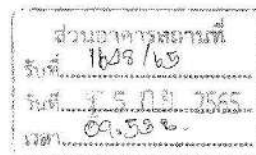 ส่วนอาคารสถานที่
รับที่ 1648/65
วันที่ 15 ก.ย. 2565
เวลา 09.53 น.